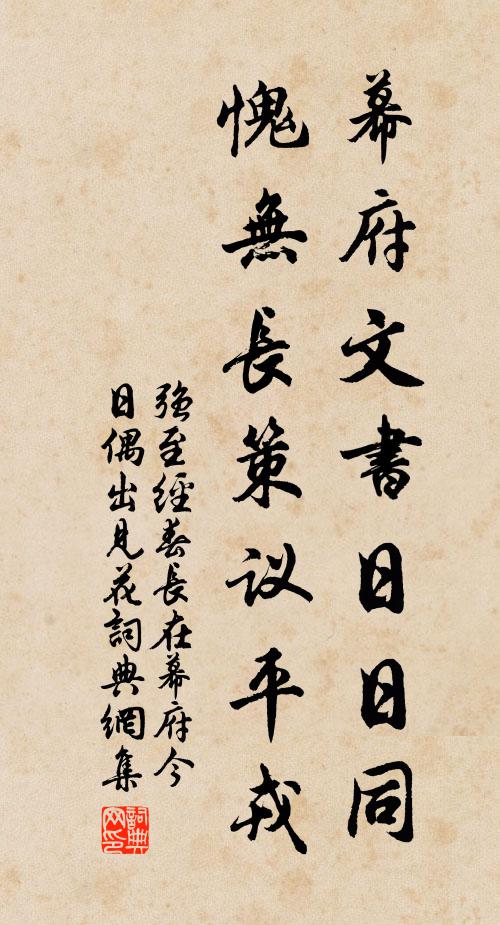 幕府文書日日同
愧無長策议平戎
强至經春長在幕府今
日偶出見花詞典網集
詞典网印